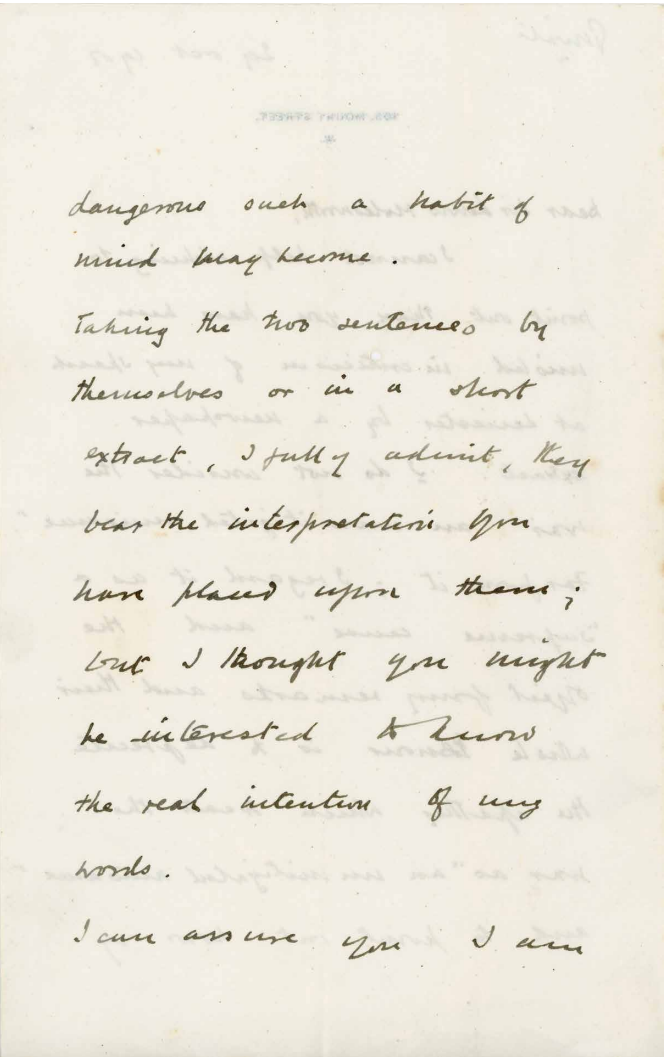 dangerous such a habit of
mind may become.
Taking the two sentences by
themselves or in a short
extract, I fully admit, they
bear the interpretation you
have placed upon them;
but I thought you might
be interested to know
the real intention of my
words.
I can assure you I am